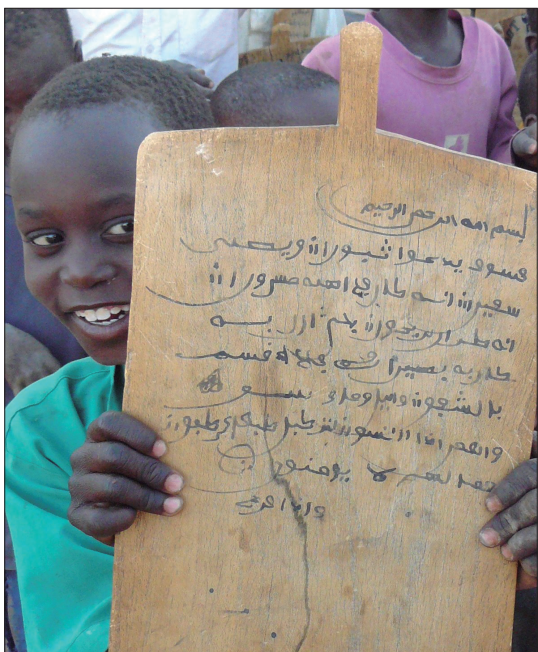 بسم الله الرحمن الرحيم
فسوف يدعوا ثبورا ويصلى
سعيرا انه كان في اهله مسرورا
انه ظن ان لن يحور بلى ان ربه
كان به بصيرا فلا اقسم
بالشفق واليل وما وسق
والقمر اذا اتسق لتركبن طبقا عن طبق
فما لهم لا يومنون
واذا قرئ